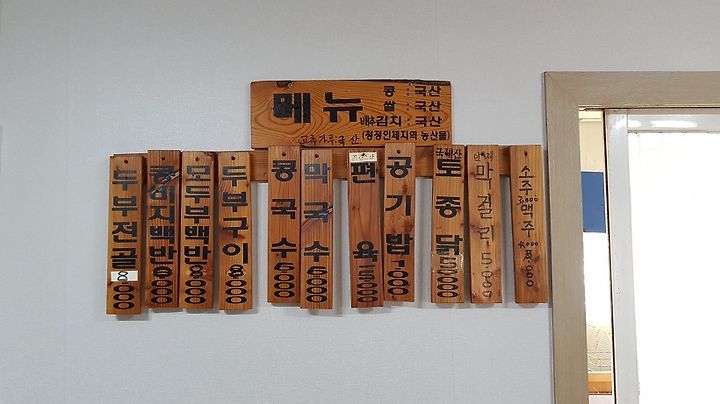 메뉴
콩 : 국산
쌀 : 국산
배추김치 : 국산
(청정인제지역 농산물)
고추가루:국산
두부전골 8,000
콩비지백반 6000
모두부백반 8000
두부구이 8000
콩국수 6000
막국수 6000
편육
공기밥 1,000
토종닭
막걸리 5,000
소주 3,000
맥주 4,000